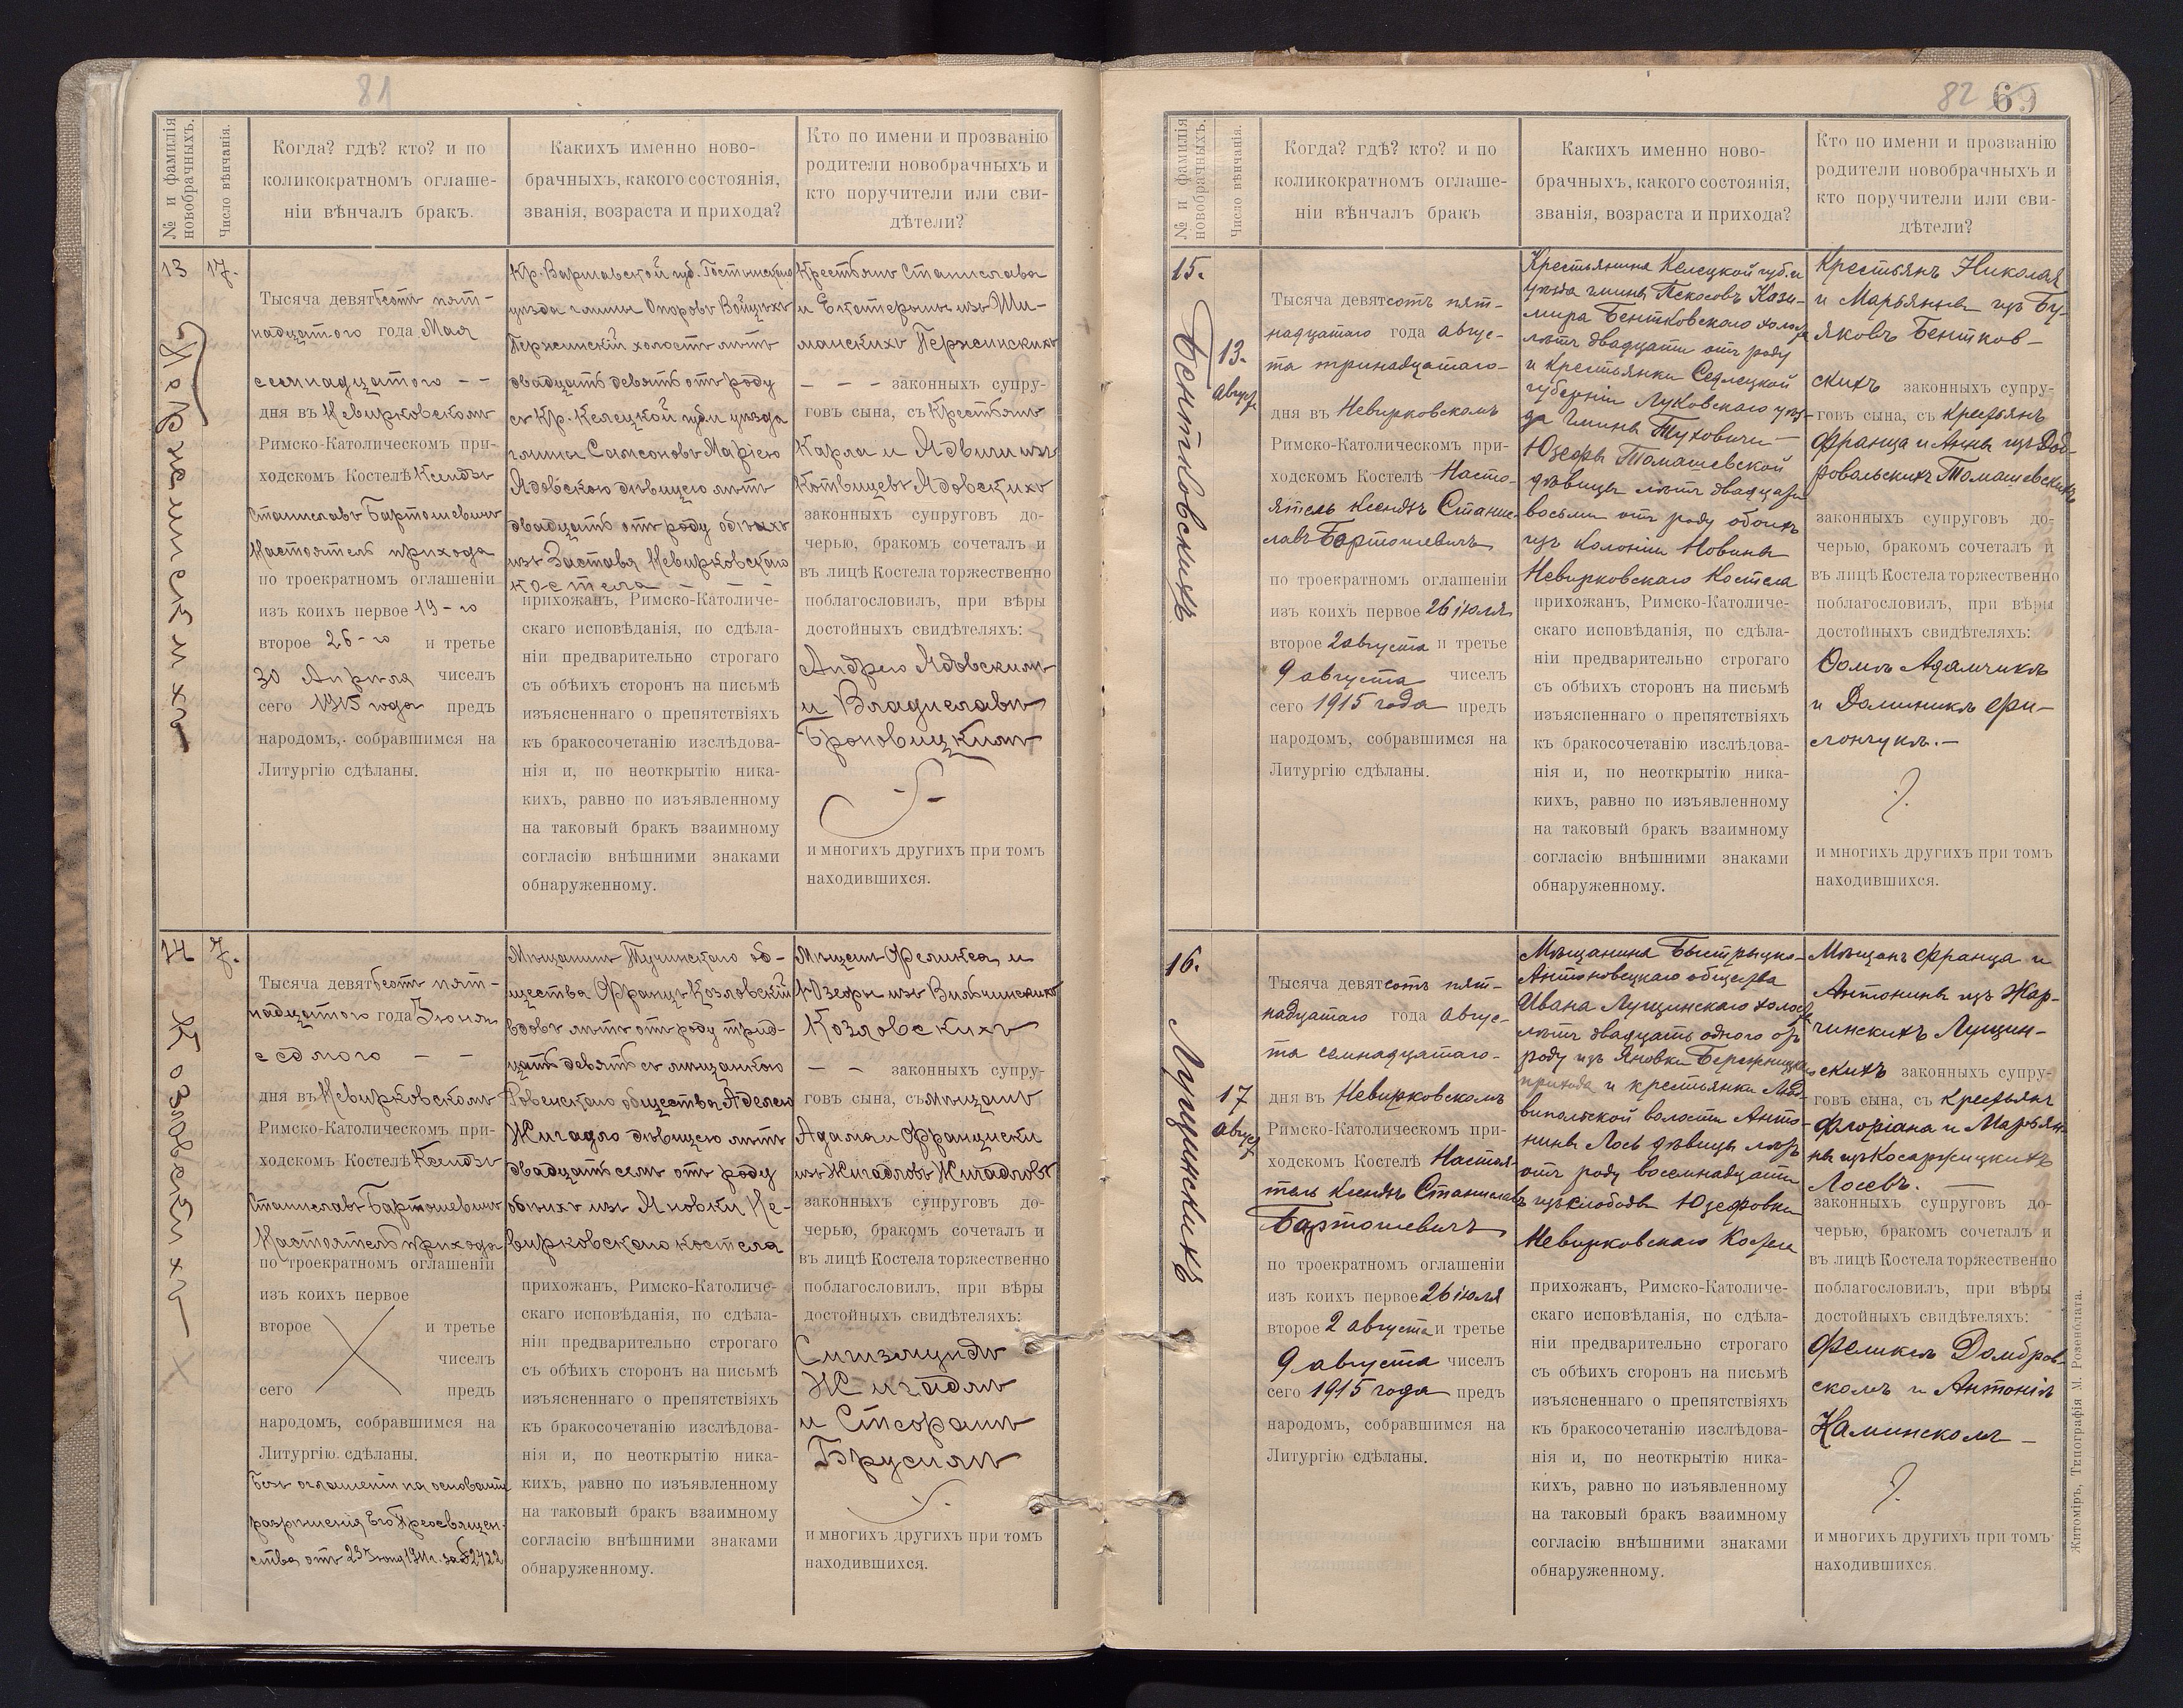 81
№ и фамилія новобрачныхъ.
Число вѣнчанія.
Когда? гдѣ? кто? и по
коликократномъ оглаше-
ніи вѣнчалъ бракъ.
Какихъ именно ново-
брачныхъ, какого состоянія,
званія, возраста и прихода?
Кто по имени и прозванію
родители новобрачныхъ и
кто поручители или сви-
дѣтели?
13
17.
Тысяча девятьсотъ пят-
надцатого года Мая
семнадцатого - -
дня въ Невирковскомъ
Римско-Католическомъ при-
ходскомъ Костелѣ Ксендзъ
Станиславъ Бартошевичъ
Настоятель прихода
по троекратномъ оглашеніи
изъ коихъ первое 19-го
второе 26-го и третье
30 Апрѣля чиселъ
сего 1915 года предъ
народомъ, собравшимся на
Литургію сдѣланы.
Кр. Варшавской губ. Гостынскаго
уѣзда гмины Опоровъ Войцѣхъ
холостъ лѣтъ
двадцать девять отъ роду
съ Кр. Келецкой губ. и уѣзда
гмины Самсоновъ Маріею
Ядовскою дѣвицею лѣтъ
двадцать отъ роду обоихъ
изъ Заставя Невирковскаго
костела - - -
прихожанъ, Римско-Католиче-
скаго исповѣданія, по сдѣла-
ніи предварительно строгаго
съ обѣихъ сторонъ на письмѣ
изъясненнаго о препятствіяхъ
къ бракосочетанію изслѣдова-
нія и, по неоткрытію ника-
кихъ, равно по изъявленному
на таковый бракъ взаимному
согласію внѣшними знаками
обнаруженному.
Крестьянъ Станислава
и Екатерины изъ Ши-
манскихъ
- - - законныхъ супру-
говъ сына, съ Крестьянъ
Карла и Ядвиги изъ
Ядовскихъ
законныхъ супруговъ до-
черью, бракомъ сочеталъ и
въ лицѣ Костела торжественно
поблагословилъ, при вѣры
достойныхъ свидѣтеляхъ:
Андрею Ядовскимъ
и Владиславъ
Броновицкимъ
и многихъ другихъ при томъ
находившихся.
14
7.
Козловскихъ
Тысяча девятьсотъ пят-
надцатого года Іюня
седмого - -
дня въ Невирковскомъ
Римско-Католическомъ при-
ходскомъ Костелѣ Ксендзъ
Станиславъ Бартошевичъ
Настоятель прихода
по троекратномъ оглашеніи
изъ коихъ первое
второе и третье
чиселъ
сего предъ
народомъ, собравшимся на
Литургію сдѣланы.
Безъ оглашеніи на основаніи
разрѣшенія Его Преосвящен-
ства отъ
Мѣщанинъ Тучинскаго об-
щества Францъ Козловскій
вдовъ лѣтъ отъ роду трид-
цать девять съ мѣщанкою
Ровенскаго общества Аделею
Жигадло дѣвицею лѣтъ
двадцать семь отъ роду
обоихъ изъ Яновки Не-
вирковскаго костела
прихожанъ, Римско-Католиче-
скаго исповѣданія, по сдѣла-
ніи предварительно строгаго
съ обѣихъ сторонъ на письмѣ
изъясненнаго о препятствіяхъ
къ бракосочетанію изслѣдова-
нія и, по неоткрытію ника-
кихъ, равно по изъявленному
на таковый бракъ взаимному
согласію внѣшними знаками
обнаруженному.
Мѣщанъ Феликса и
Юзефы изъ Вильчинскихъ
Козловскихъ
- - законныхъ супру-
говъ сына, съ мѣщанъ
Адама и Франциски
изъ Жигадловъ Жигадловъ
законныхъ супруговъ до-
черью, бракомъ сочеталъ и
въ лицѣ Костела торжественно
поблагословилъ, при вѣры
достойныхъ свидѣтеляхъ:
Сигизмундъ
Жигадлъ
и
и многихъ другихъ при томъ
находившихся.
82 69
№ и фамилія новобрачныхъ.
Число вѣнчанія.
Когда? гдѣ? кто? и по
коликократномъ оглаше-
ніи вѣнчалъ бракъ
Какихъ именно ново-
брачныхъ, какого состоянія,
званія, возраста и прихода?
Кто по имени и прозванію
родители новобрачныхъ и
кто поручители или сви-
дѣтели?
15.
Бентковскихъ
13.
Август
Тысяча девятсотъ пят-
надцатаго года авгус-
та тринадцатаго-
дня въ Невирковскомъ
Римско-Католическомъ при-
ходскомъ Костелѣ Насто-
ятель Ксендзъ Станис-
лавъ Бартошевичъ
по троекратномъ оглашеніи
изъ коихъ первое 26 іюля
второе 2 августа и третье
9 августа чиселъ
сего 1915 года предъ
народомъ, собравшимся на
Литургію сдѣланы.
Крестьянина Келецкой губ. и
уѣзда гмины Кази-
мира Бентковского холост
лѣтъ двадцати отъ роду
и крестьянки Седлецкой
губерніи Луковскаго уѣз-
да гмины Туховичи -
Юзефы Томашевской
дѣвицы лѣтъ двадцати
восьми отъ роду обоихъ
изъ Колоніи Новины
Невирковскаго Костела
прихожанъ, Римско-Католиче-
скаго исповѣданія, по сдѣла-
ніи предварительно строгаго
съ обѣихъ сторонъ на письмѣ
изъясненнаго о препятствіяхъ
къ бракосочетанію изслѣдова-
нія и, по неоткрытію ника-
кихъ, равно по изъявленному
на таковый бракъ взаимному
согласію внѣшними знаками
обнаруженному.
Крестьянъ Николая
и Марьянны изъ Бу-
яковъ Бентков-
скихъ законныхъ супру-
говъ сына, съ крестьянъ
Франца и Анны изъ Дов-
ровальскихъ Томашевскихъ
законныхъ супруговъ до-
черью, бракомъ сочеталъ и
въ лицѣ Костела торжественно
поблагословилъ, при вѣры
достойныхъ свидѣтеляхъ:
Ѳомѣ Адамчикѣ
и Доминикѣ Фи-
лончукѣ.-
и многихъ другихъ при томъ
находившихся.
16.
Лущинскихъ
17
август
Тысяча девятсотъ пят-
надцатаго года авгус-
та семнадцатаго-
дня въ Невирковскомъ
Римско-Католическомъ при-
ходскомъ Костелѣ Настоя-
тель Ксендзъ Станиславъ
Бартошевичъ
по троекратномъ оглашеніи
изъ коихъ первое 26 іюля
второе 2 августа и третье
9 августа чиселъ
сего 1915 года предъ
народомъ, собравшимся на
Литургію сдѣланы.
Мѣщанина Быстрыцко-
Антоновецкаго общества
Ивана Лущинскаго холост
лѣтъ двадцать одного отъ
роду изъ Яновки Бережницкаго
прихода и крестьянки Люд-
випольской волости Анто-
нины Лось дѣвицы лѣтъ
отъ роду восемнадцати
изъ слободы Юзефовки
Невирковскаго Костела
прихожанъ, Римско-Католиче-
скаго исповѣданія, по сдѣла-
ніи предварительно строгаго
съ обѣихъ сторонъ на письмѣ
изъясненнаго о препятствіяхъ
къ бракосочетанію изслѣдова-
нія и, по неоткрытію ника-
кихъ, равно по изъявленному
на таковый бракъ взаимному
согласію внѣшними знаками
обнаруженному.
Мѣщанъ Франца и
Антонины изъ Жар-
чинскихъ Лущин-
скихъ законныхъ супру-
говъ сына, съ крестьянъ
Флоріана и Марьян-
ны изъ Косаржицкихъ
Лосевъ. -
законныхъ супруговъ до-
черью, бракомъ сочеталъ и
въ лицѣ Костела торжественно
поблагословилъ, при вѣры
достойныхъ свидѣтеляхъ:
Феликсѣ Домбров-
скомъ и Антоніѣ
Каминскомъ -
и многихъ другихъ при томъ
находившихся.
Житоміръ, Типографія М. Розенблата.